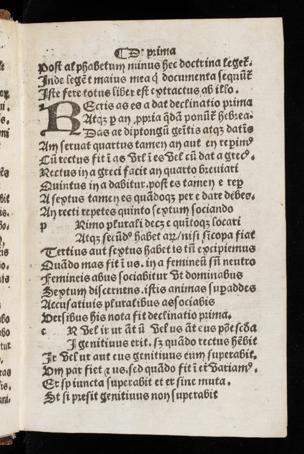 D: prima
Post alphabetum minus hec doctrina legeť.
Inde legēt maius mea q̄ documenta sequūť
Iste fere totus liber est extractus ab illo.
REctis as es a dat declinatio prima
Atqȝ p an ,ppria q̄dā ponūť hebrea.
Das ae diptongū geťtis atqȝ datīs
Am seruat quartus tamen an aut en repimꝰ
Cū rectus fit ī as vel ī es vel cū dat a grecꝰ.
Rectus in a greci facit an quarto breuiari
Quintus in a dabitur. post es tamen e rep
A sextus tamen es quādoqȝ per e dare debes.
An recti repetes quinto sextum sociando
p Rimo plurali decȝ e quītoqȝ locari
Atqȝ secūdꝰ habet aȝ/nisi sīcopa fiat
Tertius aut sextus habet is tn̄ excipiemus
Quādo mas fit ī us. in a femineū sn̄ neutro
Femineis abus sociabitur vt dominabus
Sexum discernens. istis animas supaddes
Accusatiuis pluralibus as sociabis
Versibus his nota fit declinatio prima.
R vel ir ur āt ū vel us āt eus
I genitiuus erit. sȝ quādo rectus hēbit
Ir vel ur aut eus genitiuus eum superabit.
Vm par fiet ⁊ us. sed quādo fit ī
Er sp iuncta superabit et er sine muta.
St si presit genitiuus non superabit